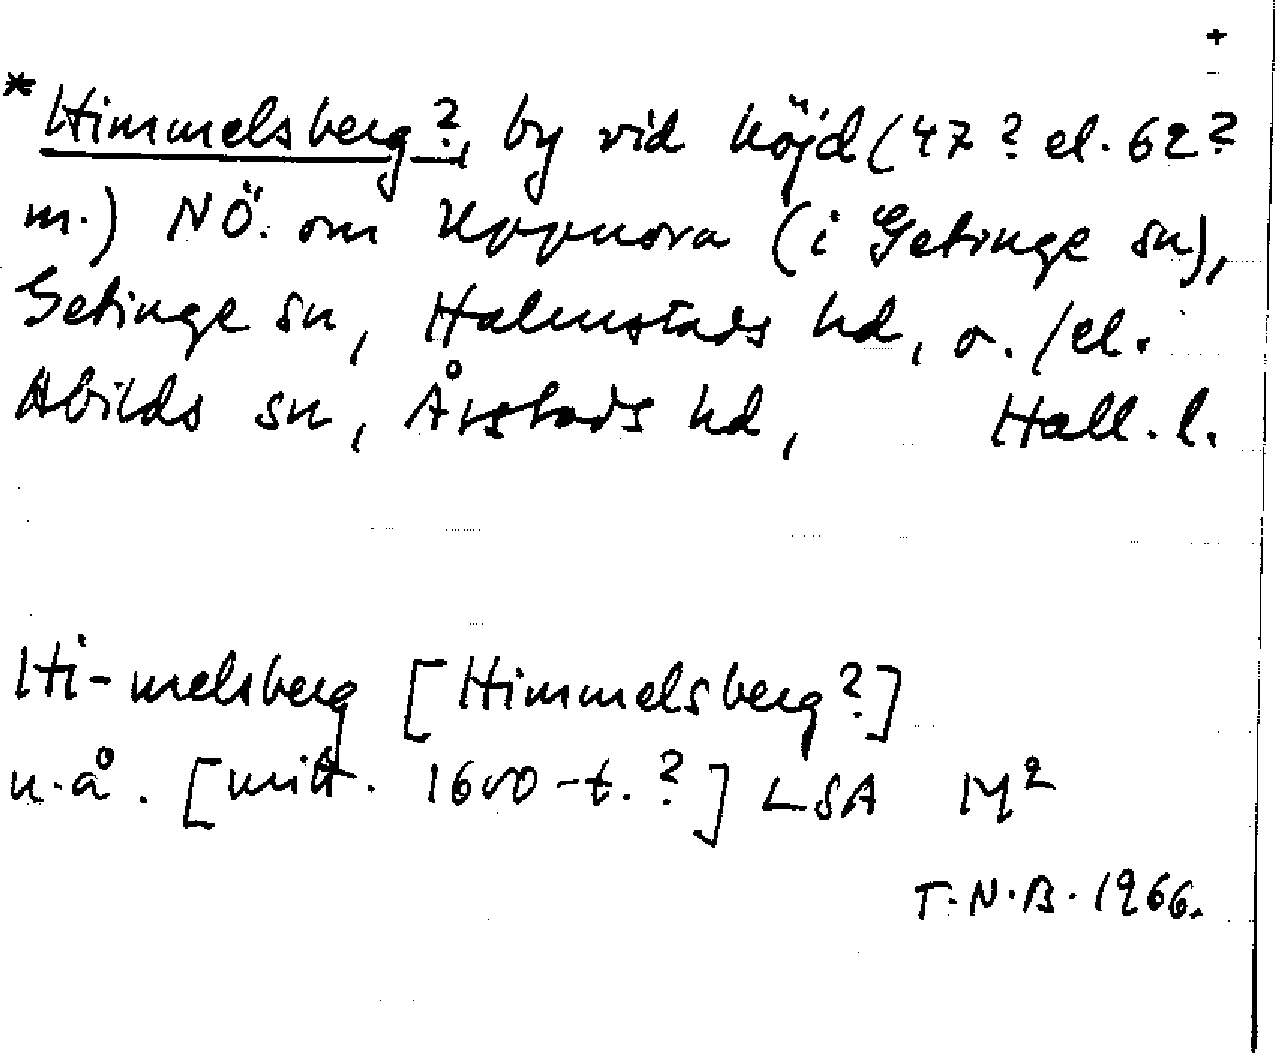 +
*Himmelsberg?, by vid höjd (47? el. 62?
m.) NÖ. om Uppnora (i Getinge sn),
Getinge sn, Halmstads hd, o./el.
Abilds sn, Årstads hd, Hall. l.
Hi-melsberg [Himmelsberg?]
u.å. [mitt. 1600-t.?] LSA M²
T.N.B. 1966.